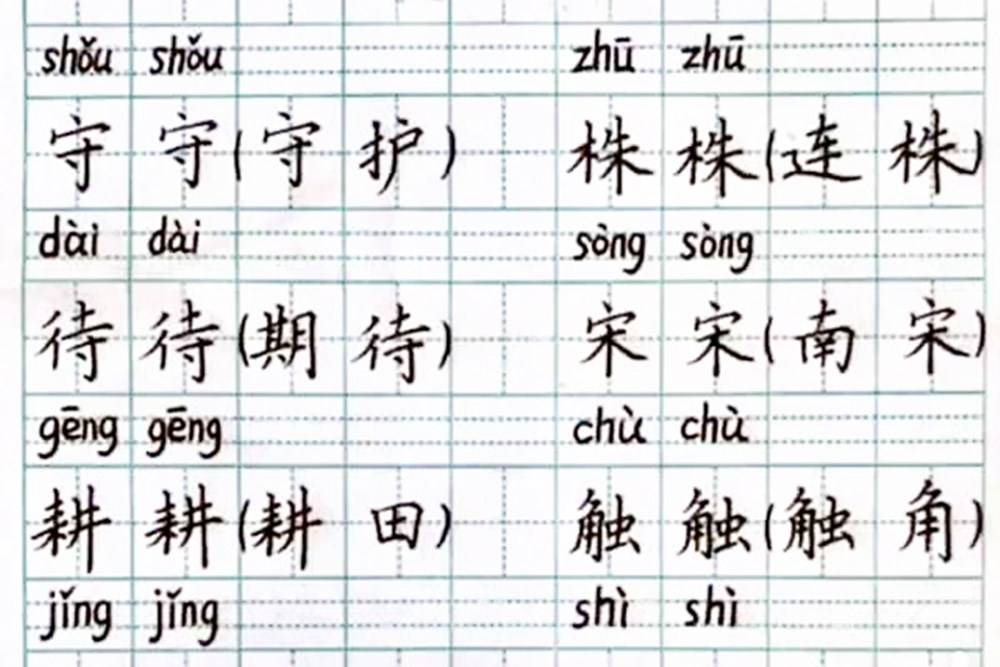 shǒu shǒu zhū zhū
守 守(守 护) 株 株(连 株)
dài dài sòng sòng
待 待(期 待) 宋 宋(南 宋)
gēng gēng chù chù
耕 耕(耕 田) 触 触(触 角)
jǐng jǐng shì shì